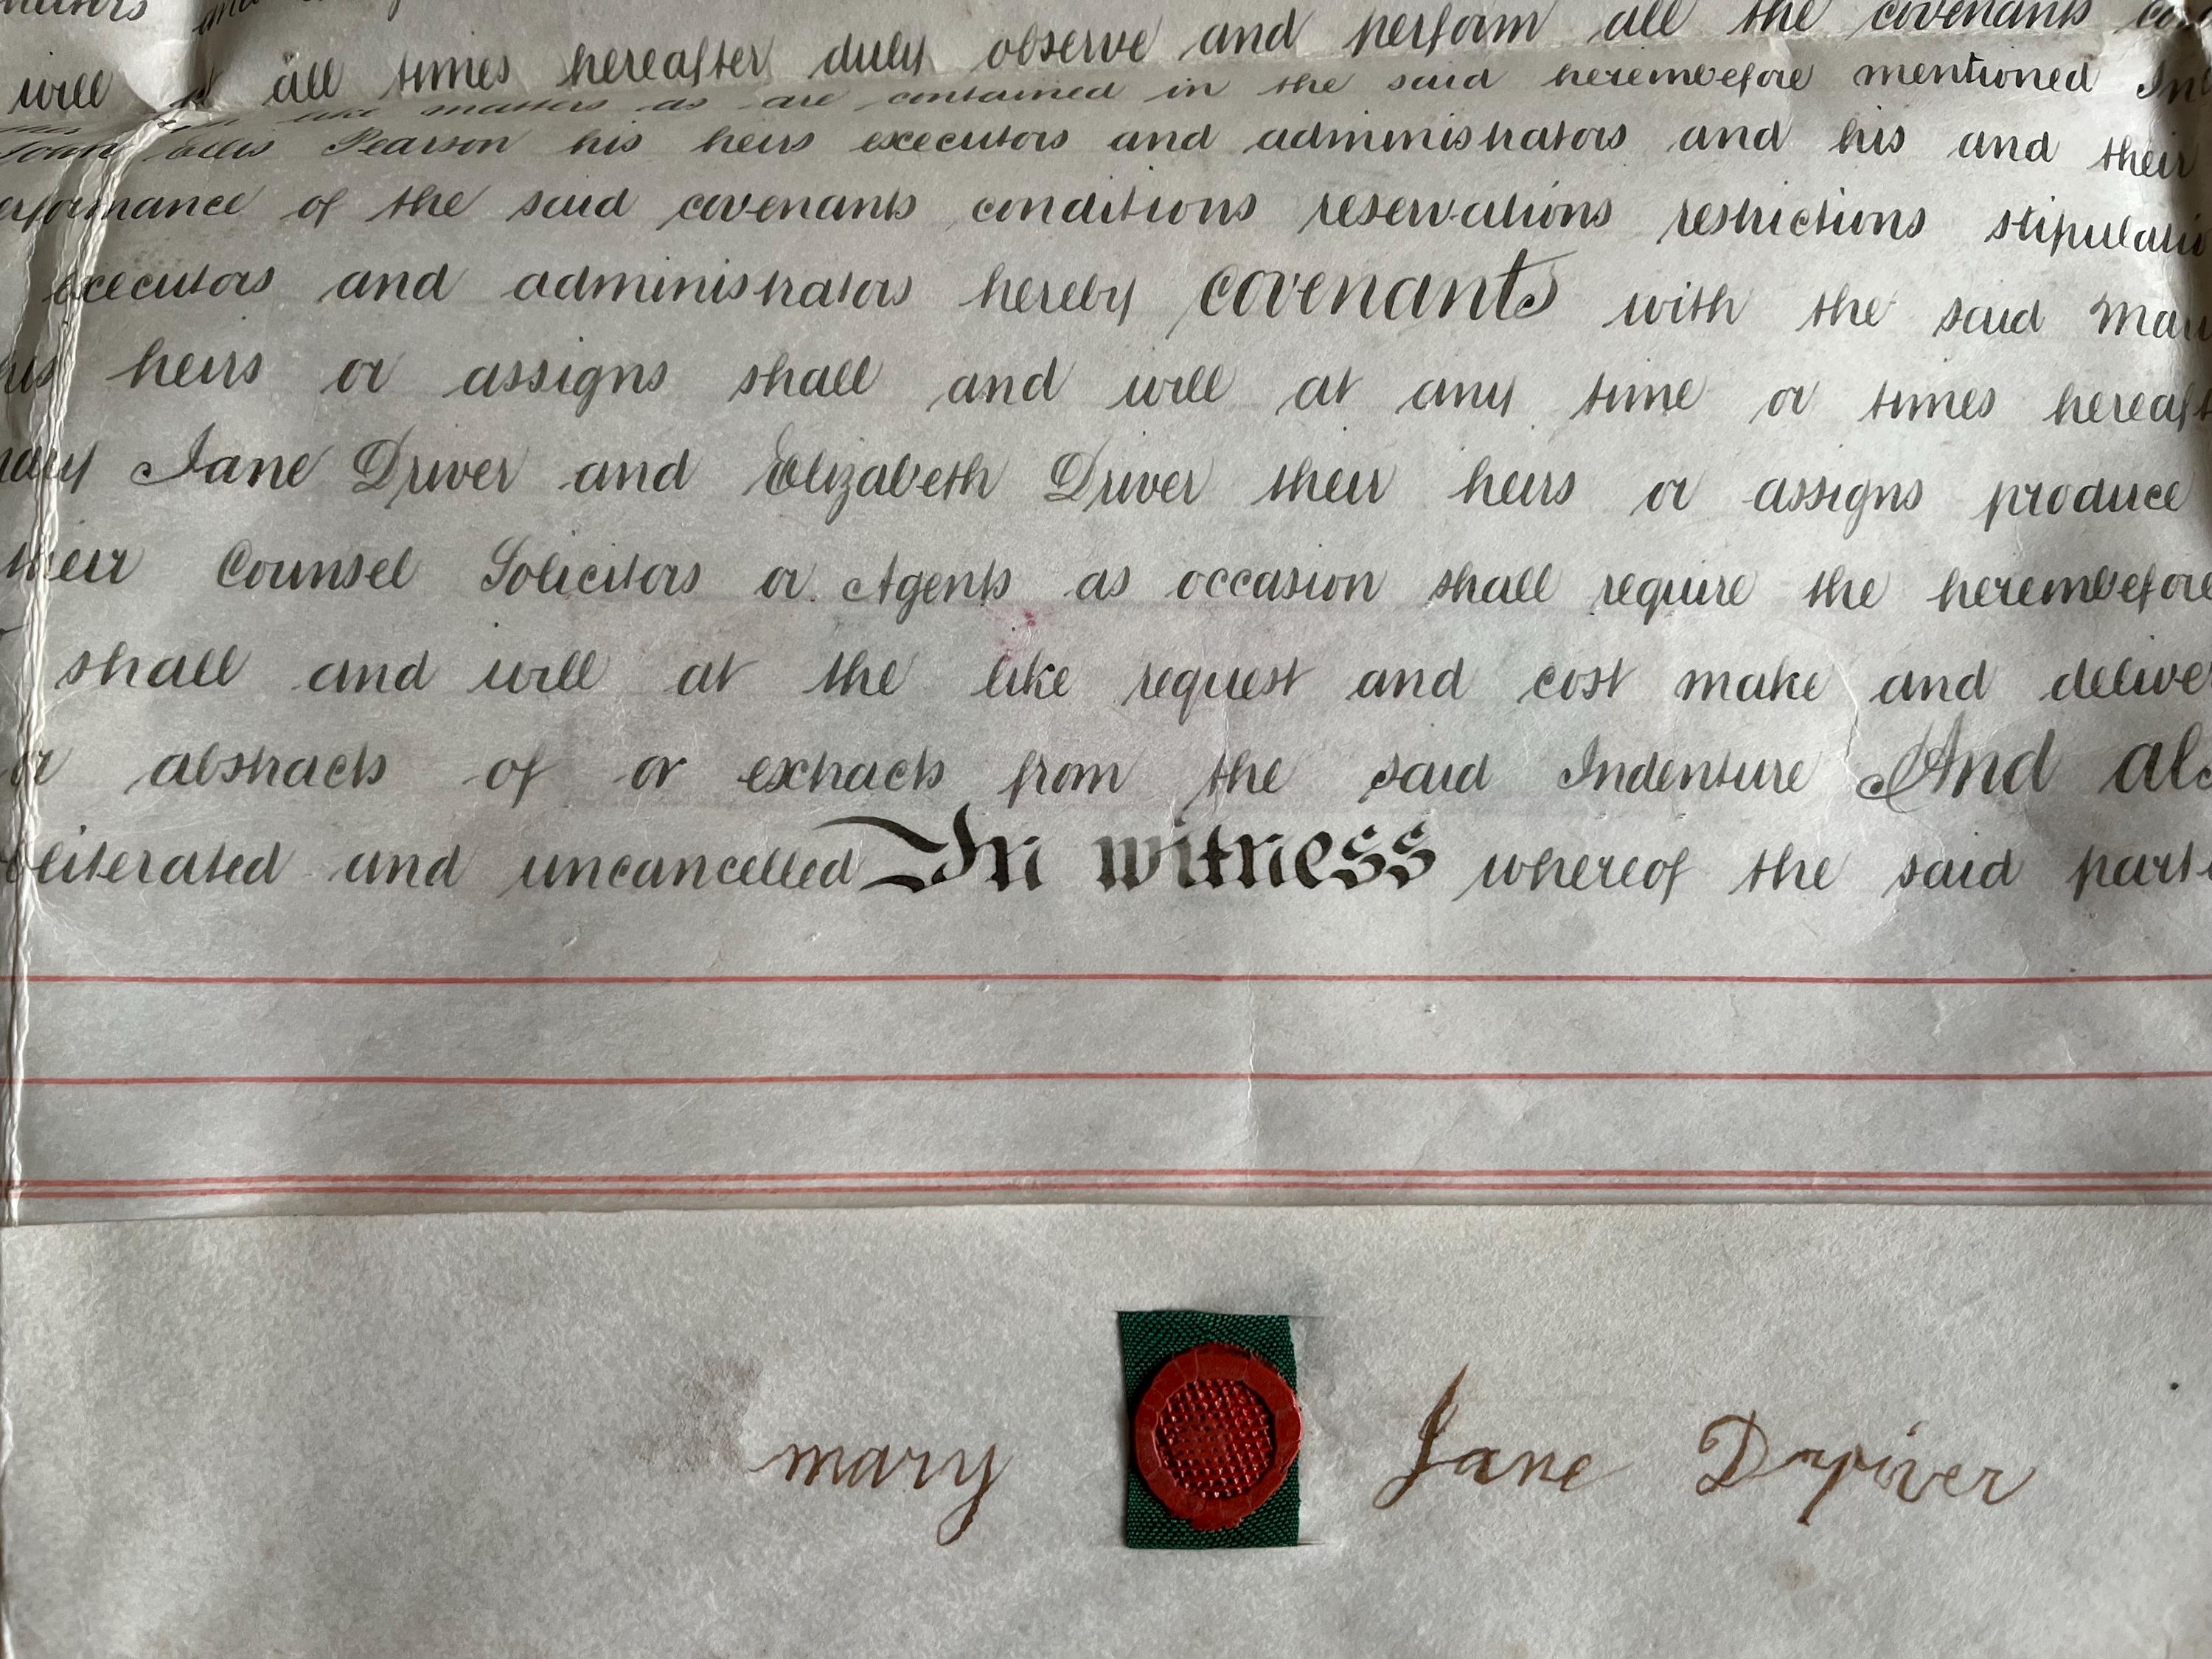 and
will at all times hereafter duly observe and perform all the covenants
matters as are contained in the said hereinbefore mentioned
John Ellis Pearson his heirs executors and administrators and his and their
erformance of the said covenants conditions reservations restrictions stipulati
executors and administrators hereby covenants with the said Mary
his heirs or assigns shall and will at any time or times hereaft
Mary Jane Driver and Elizabeth Driver their heirs or assigns produce
their Counsel Solicitors or Agents as occasion shall require the hereinbefore
shall and will at the like request and cost make and delive
or abstracts of or extracts from the said Indenture And als
bliterated and uncancelled In witness whereof the said parti
mary Jane Driver